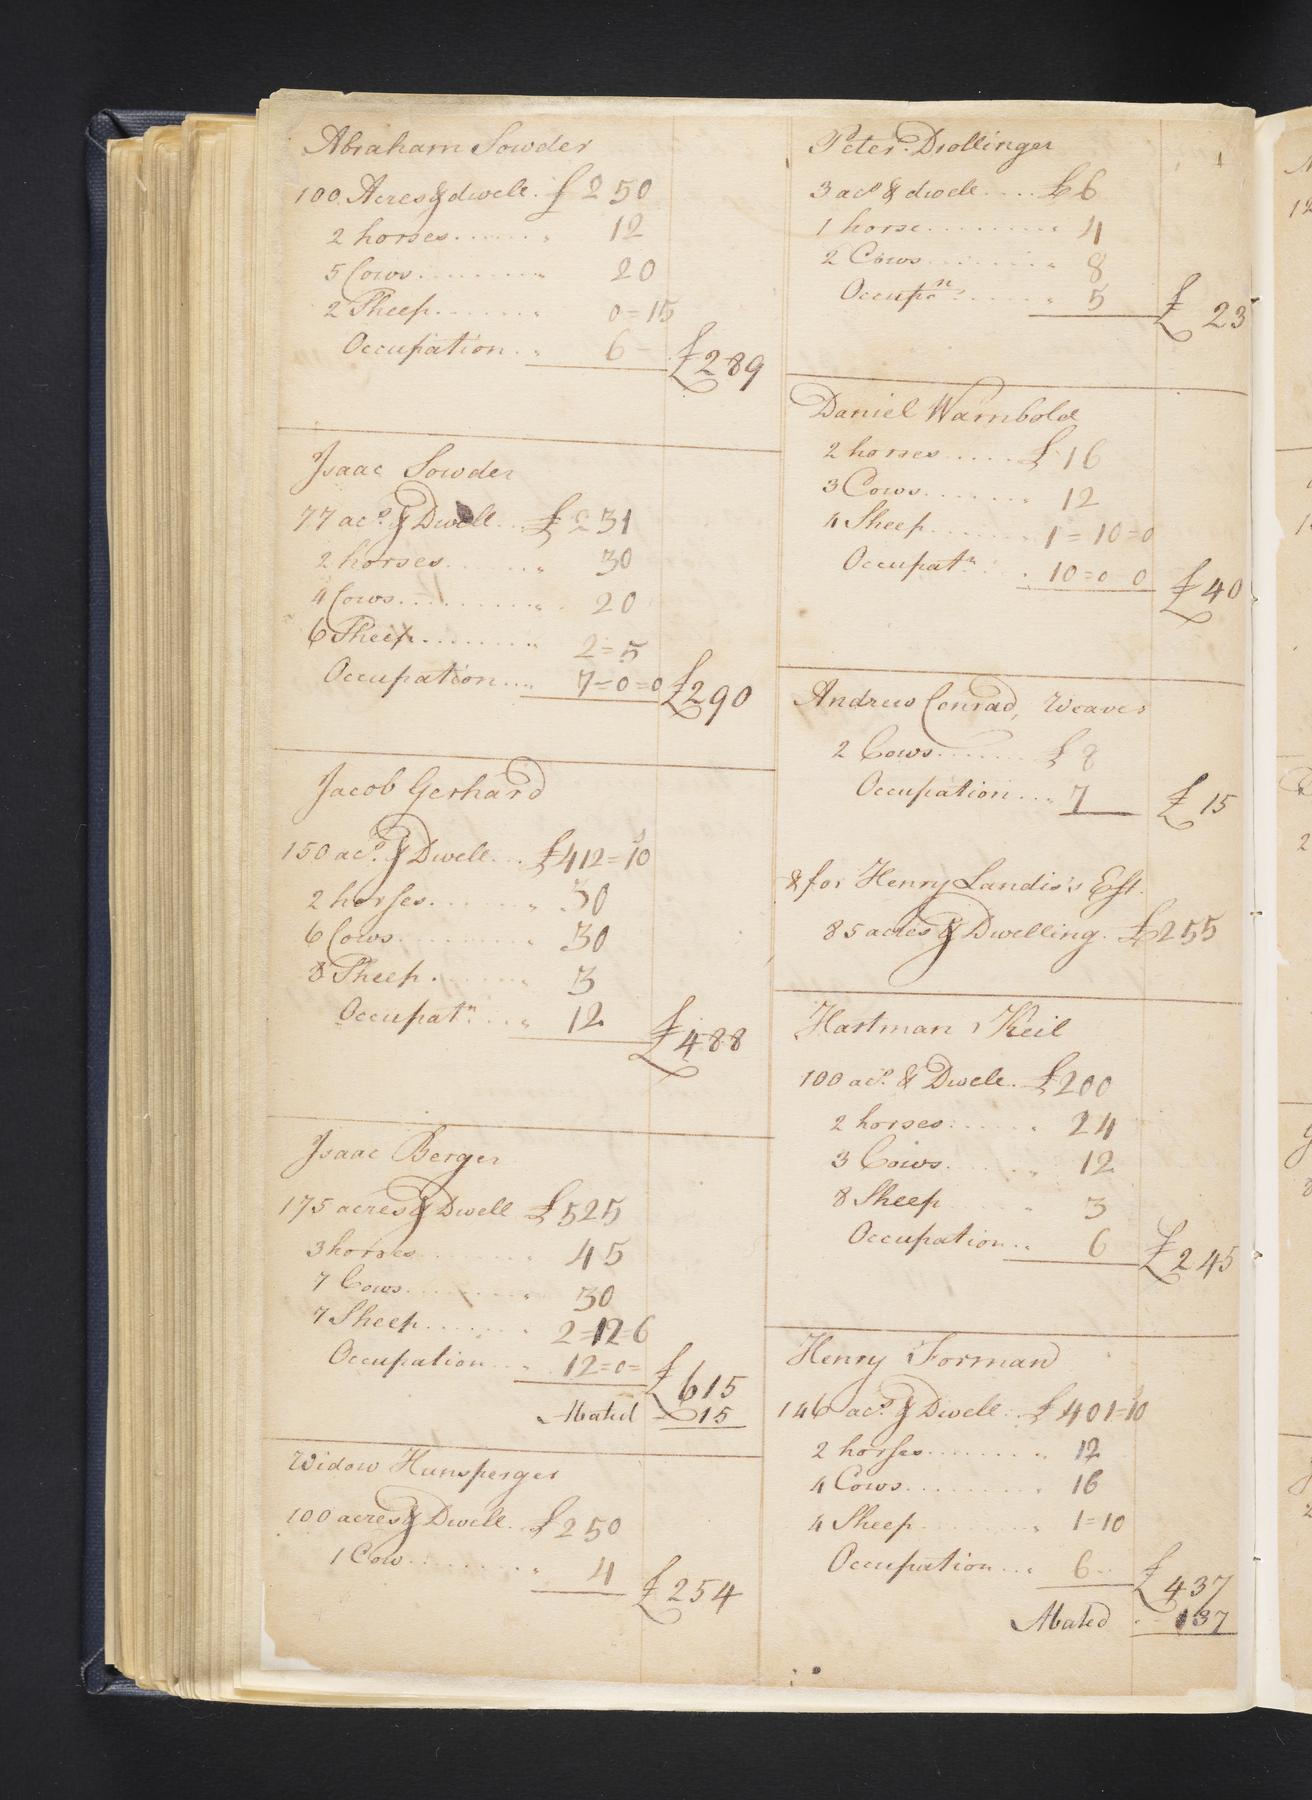 Abraham Sowder
100 Acres & dwell. £ 250
2 horses " 12
5 Cows " 20
2 Sheep " 0=15
Occupation " 6 – £289
Isaac Sowder
77 acs. & Dwell £ 231
2 horses " 30
4 Cows " 20
6 Sheep " 2=5
Occupation " 7=0=0 £290
Jacob Gerhard
150 acs. & Dwell £412=10
2 horses " 30
6 Cows " 30
8 Sheep " 3
Occupatn. " 12 £488
Isaac Berger
175 acres & Dwell £525
3 horses " 45
7 Cows " 30
7 Sheep " 2=12=6
Occupation " 12=0= £615
Abated 15
Widow Hunsperger
100 acres & Dwell £250
1 Cow " 4 £254
Peter Drollinger
3 acs & dwell £6
1 horse " 4
2 Cows " 8
Occupan. " 5 £ 23
Daniel Warnbold
2 horses £16
3 Cows " 12
4 Sheep " 1=10=0
Occupatn. " 10=0 0 £40
Andrew Conrad, Weaver
2 Cows £8
Occupation " 7 £15
& for Henry Landis's Est.
85 acres & Dwelling £255
Hartman Keil
100 acs. & Dwell. £200
2 horses " 24
3 Cows " 12
8 Sheep " 3
Occupation " 6 £245
Henry Forman
146 acs. & Dwell £401=10
2 horses " 12
4 Cows " 16
4 Sheep " 1=10
Occupation " 6 – £437
Abated 137